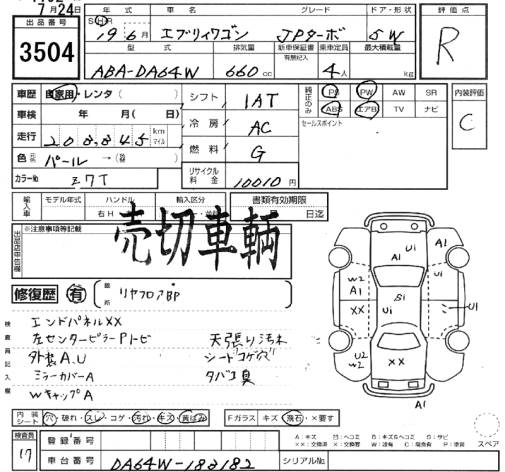 7月24日
出品番号 3504
年式 S H 19年6月
車名 エブリィワゴン
グレード JPターボ
ドア・形状 5W
評価点 R
型式 ABA-DA64W
排気量 660cc
新車保証書 有無記入
乗車定員 4人
最大積載量 kg
車歴 自家用・レンタ( )
シフト IAT
純正のみ PS PW AW SR
ABS エアB TV ナビ
内装評価 C
車検 年 月( 日)
冷房 AC
セールスポイント
走行 208,845 km マイル
燃料 G
色 元色 パール→(色替 )
カラーNo Z7T
リサイクル料金 10010円
輸入車 モデル年式 ハンドル 右H 輸入区分
書類有効期限 日迄
出品店申告欄 ※注意事項等記載
売切車輌
修復歴 有 箇所 リヤフロアBP
検査員記入欄
エンドパネルXX
左センターピラーPトビ
外装A.U
ミラーカバーA
WキャップA
天張り汚れ
シートコゲ穴
タバコ臭
A1 U1 A1 U1
W2 A1 S1 U1 U1
XX XX
U2 W2 XX A1
A1
内装シート 穴・破れ・スレ・コゲ・汚れ・キズ・黄ばみ
Fガラス キズ・飛石・×要す
スペア
検査員 17
登録番号
車台番号 DA64W-182182
シリアルNo